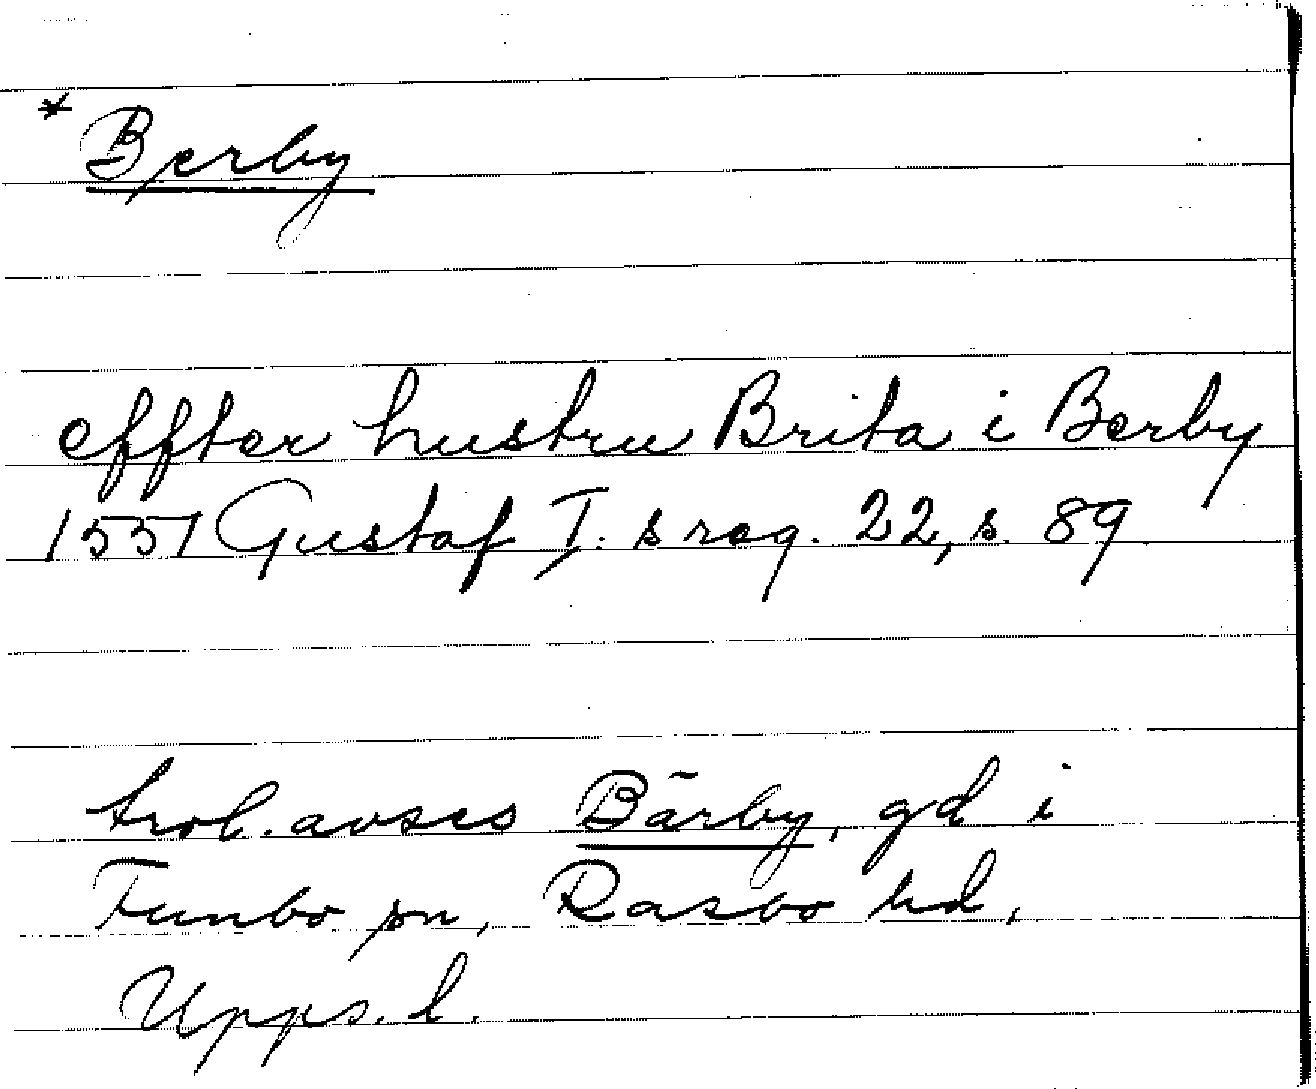 * Berby
effter hustru Brita i Berby
1551 Gustaf I. s reg. 22, s. 89
trol. avses Bärby, gd i
Funbo sn, Rasbo hd,
Upps. l.